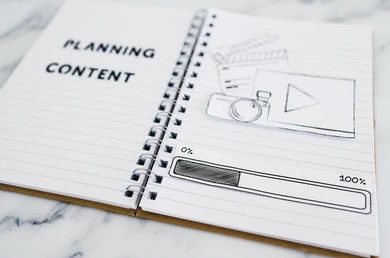 PLANNING
CONTENT
0%
100%